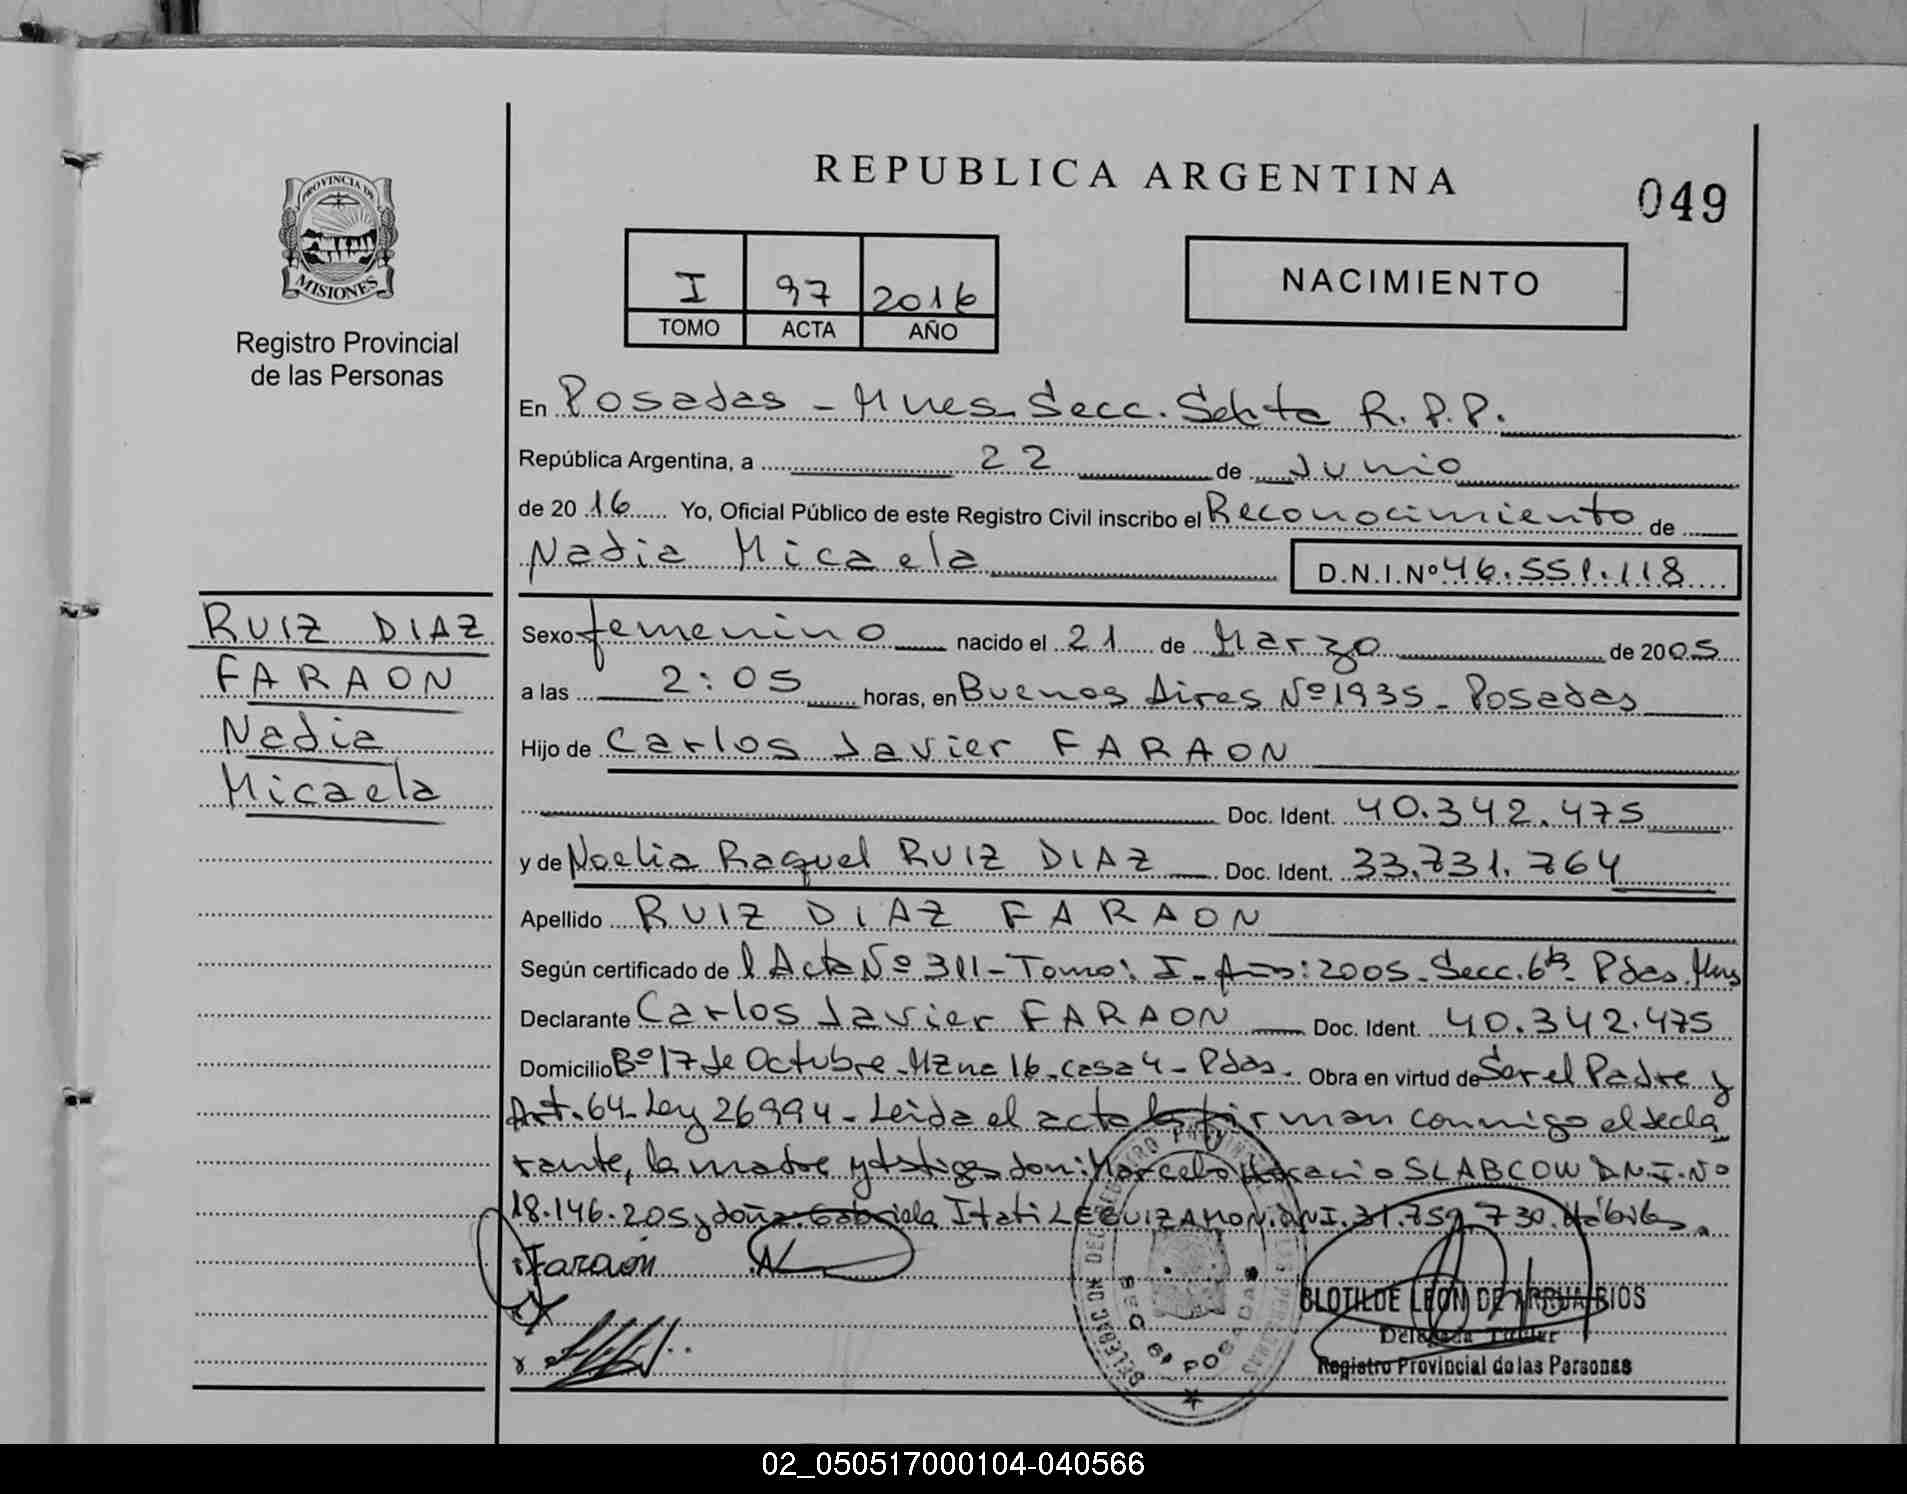 REPUBLICA ARGENTINA
049
PROVINCIA DE
MISIONES
Registro Provincial
de las Personas
I 97 2016
TOMO ACTA AÑO
NACIMIENTO
En Posadas - Mnes. Secc. Sexta R.P.P.
República Argentina, a 22 de Junio
de 2016 Yo, Oficial Público de este Registro Civil inscribo el Reconocimiento de
Nadia Micaela D.N.I.Nº 46.551.118
RUIZ DIAZ
FARAON
Nadia
Micaela
Sexo femenino nacido el 21 de Marzo de 2005
a las 2:05 horas, en Buenos Aires Nº 1935 - Posadas
Hijo de Carlos Javier FARAON
Doc. Ident. 40.342.475
y de Noelia Raquel RUIZ DIAZ Doc. Ident. 33.731.764
Apellido RUIZ DIAZ FARAON
Según certificado de l Acta Nº 311 - Tomo: I - Año: 2005 - Secc. 6ta - Pdas. Mnes
Declarante Carlos Javier FARAON Doc. Ident. 40.342.475
Domicilio Bº 17 de Octubre - Mzna 16 - casa 4 - Pdas. Obra en virtud de Ser el Padre y
Art. 64 - Ley 26994 - Leida el acta la firman conmigo el decla
rante, la madre y testigos don: Marcelo Horacio SLABCOW D.N.I. Nº
18.146.205 y doña: Gabriela Itati LEGUIZAMON. DNI. 31.759.730. Hábiles.
Faraón
CLOTILDE LEON DE ARRUA RIOS
Delegada Titular
Registro Provincial de las Personas
DELEGACION DEL REGISTRO PROVINCIAL DE LAS PERSONAS
SECC 6ª POSADAS
02_050517000104-040566